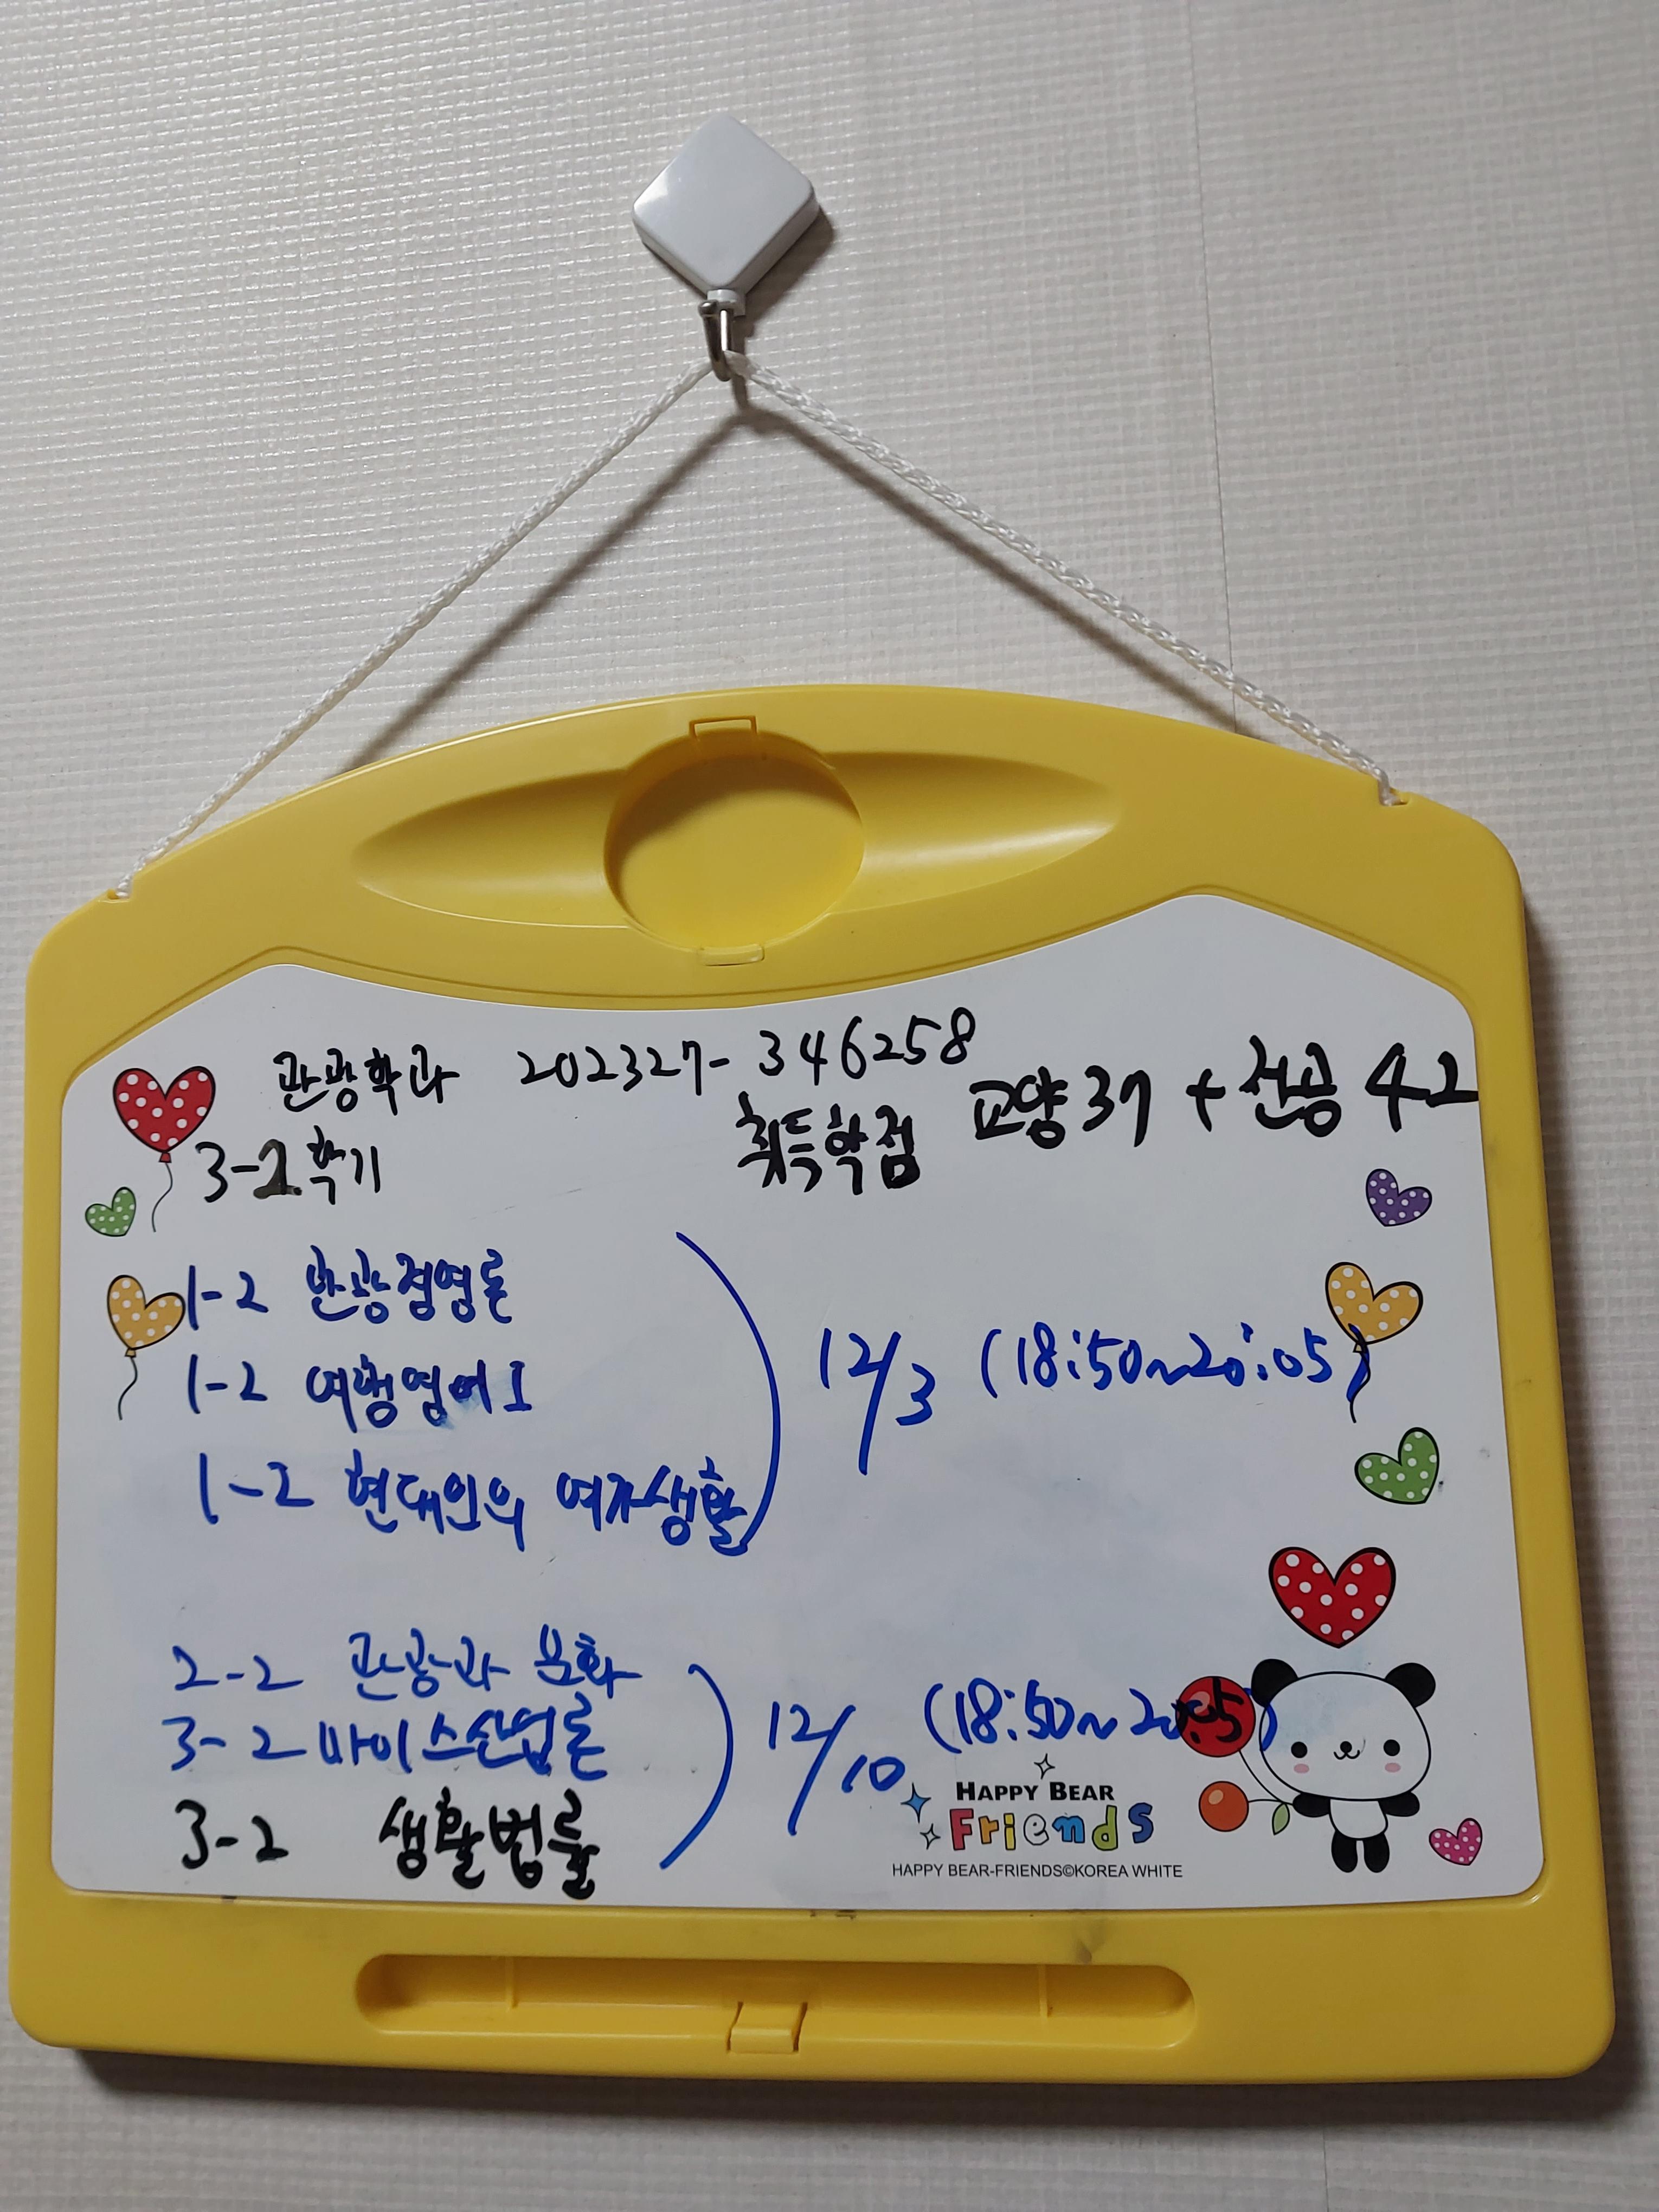 관광학과 202327-346258
3-2학기 취득학점 교양37 + 전공 42
1-2 관광경영론
1-2 여행영어I
1-2 현대인의 여가생활
12/3 (18:50~20:05)
2-2 관광과 문화
3-2 마이스산업론
3-2 생활법률
12/10 (18:50~20:05)
HAPPY BEAR
Friends
HAPPY BEAR-FRIENDS©KOREA WHITE